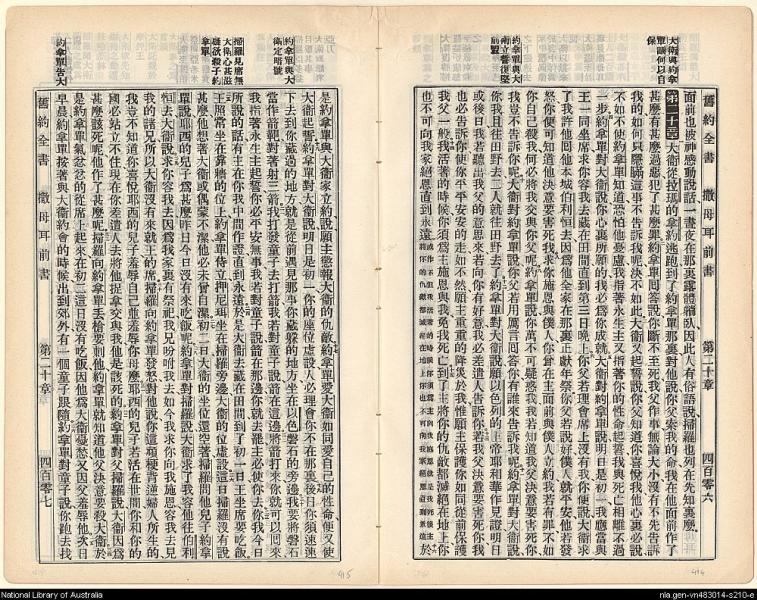 舊約全書 撒母耳前書 第二十章 四百零六
大衛與約拿單商何以自保
約拿單與大衛立誓復從前盟
面前也被神感動說話一晝夜在那裏露體躺臥因此人有俗語說掃羅也列在先知裏麼
第二十章 大衛從拉瑪的拿約逃跑到了約拿單那裏對他說你父索我的命我在他面前作了
甚麼有甚麼過惡犯了甚麼罪約拿單回答說你斷不至死我父作事無論大小沒有不先告訴
我的如何只瞞騙這事不告訴我呢決不如此大衛又起誓說你父知道你喜悅我他心裏必說
不如不使約拿單知道恐怕他憂慮我指著永生主又指著你的性命起誓我與死亡相離不過
一步約拿單對大衛說你心裏所願的我必為你成就大衛對約拿單說明日是初一我應當與
王一同坐席求你容我去藏在田間直到第三日晚上你父若理會席上沒有我你便說大衛求
了我許他回他本城伯利恒去因為他全家在那裏正獻年祭你父若說好僕人就平安他若發
怒你便可知道他決意要害死我求你施恩與僕人你曾在主面前與僕人立約我若有罪不如
你自己殺我何必將我交與你父呢約拿單說你萬不可疑惑我我若知道我父決意要害死你
我豈不告訴你呢大衛對約拿單說你父若用厲言回答你有誰來告訴我呢約拿單對大衛說
你我且往田野去二人就往田野去了約拿單對大衛說願以色列的主耶和華作見證明日
或後日我若聽出我父的意思來若向你有好意我必差遣人告訴你若我父決意要害死你我
也必告訴你使你平平安安的走如不然願主重重的降災於我惟願主保護你如同從前保護
我父一般我活著的時候你須為主施恩與我免我死亡到了主將你的仇敵都滅絕在地上你
也不可向我家絕恩直到永遠
約拿單與大衛定暗號
掃羅見席無大衛心甚欲殺子約拿單
約拿單告大
是約拿單與大衛家立約說願主懲報大衛的仇敵約拿單愛大衛如同愛自己的性命便又使
大衛起誓約拿單對大衛說明日是初一你的座位虛設人必理會你不在那裏後日你須速速
下去到你藏過的地方就是從前遇見那事你藏躲的地方坐在以色磐石的旁邊我要將磐石
當作箭靶對著射三箭我打發童子去打箭我若對童子說箭在這邊將箭打來你就可以回來
我指著永生主起誓你必平安無事我若對童子說箭在那邊你就去罷主必使你去你我今日
所說的話有主在你我中間作證直到永遠於是大衛去藏在田間到了初一日王坐席要吃飯
王照常坐在靠牆的位上約拿單侍立押尼珥坐在掃羅旁邊大衛的位虛設這日掃羅沒有說
甚麼他想著大衛或偶蒙不潔他必未曾自潔初二日大衛的坐位還空著掃羅問他兒子約拿
單說耶西的兒子為甚麼昨日今日沒有來吃飯呢約拿單對掃羅說大衛求了我容他往伯利
恒去大衛說求你容我去因為我家裏有祭祀我兄吩咐我去如今我求你向我施恩容我去見
我的諸兄所以大衛沒有來就王的席掃羅向約拿單發怒對他說你這頑梗背逆婦人所生的
我豈不知道你喜悅耶西的兒子羞辱自己並羞辱你母麼耶西的兒子若活在世間你和你的
國必站立不住現在你差遣人去將他捉拿交與我他是該死的約拿單對父掃羅說大衛因為
甚麼該死呢他作了甚麼呢掃羅向約拿單丟槍要刺他約拿單就知道他父決意要殺大衛於
是約拿單氣忿忿的從席上起來在初二這日沒有吃飯因他為大衛憂愁又因父羞辱他次日
早晨約拿單按著與大衛約會的時候出到郊外有一個童子跟隨約拿單對童子說你跑去找
舊約全書 撒母耳前書 第二十章 四百零七
415
414
National Library of Australia
nla.gen-vn483014-s210-e